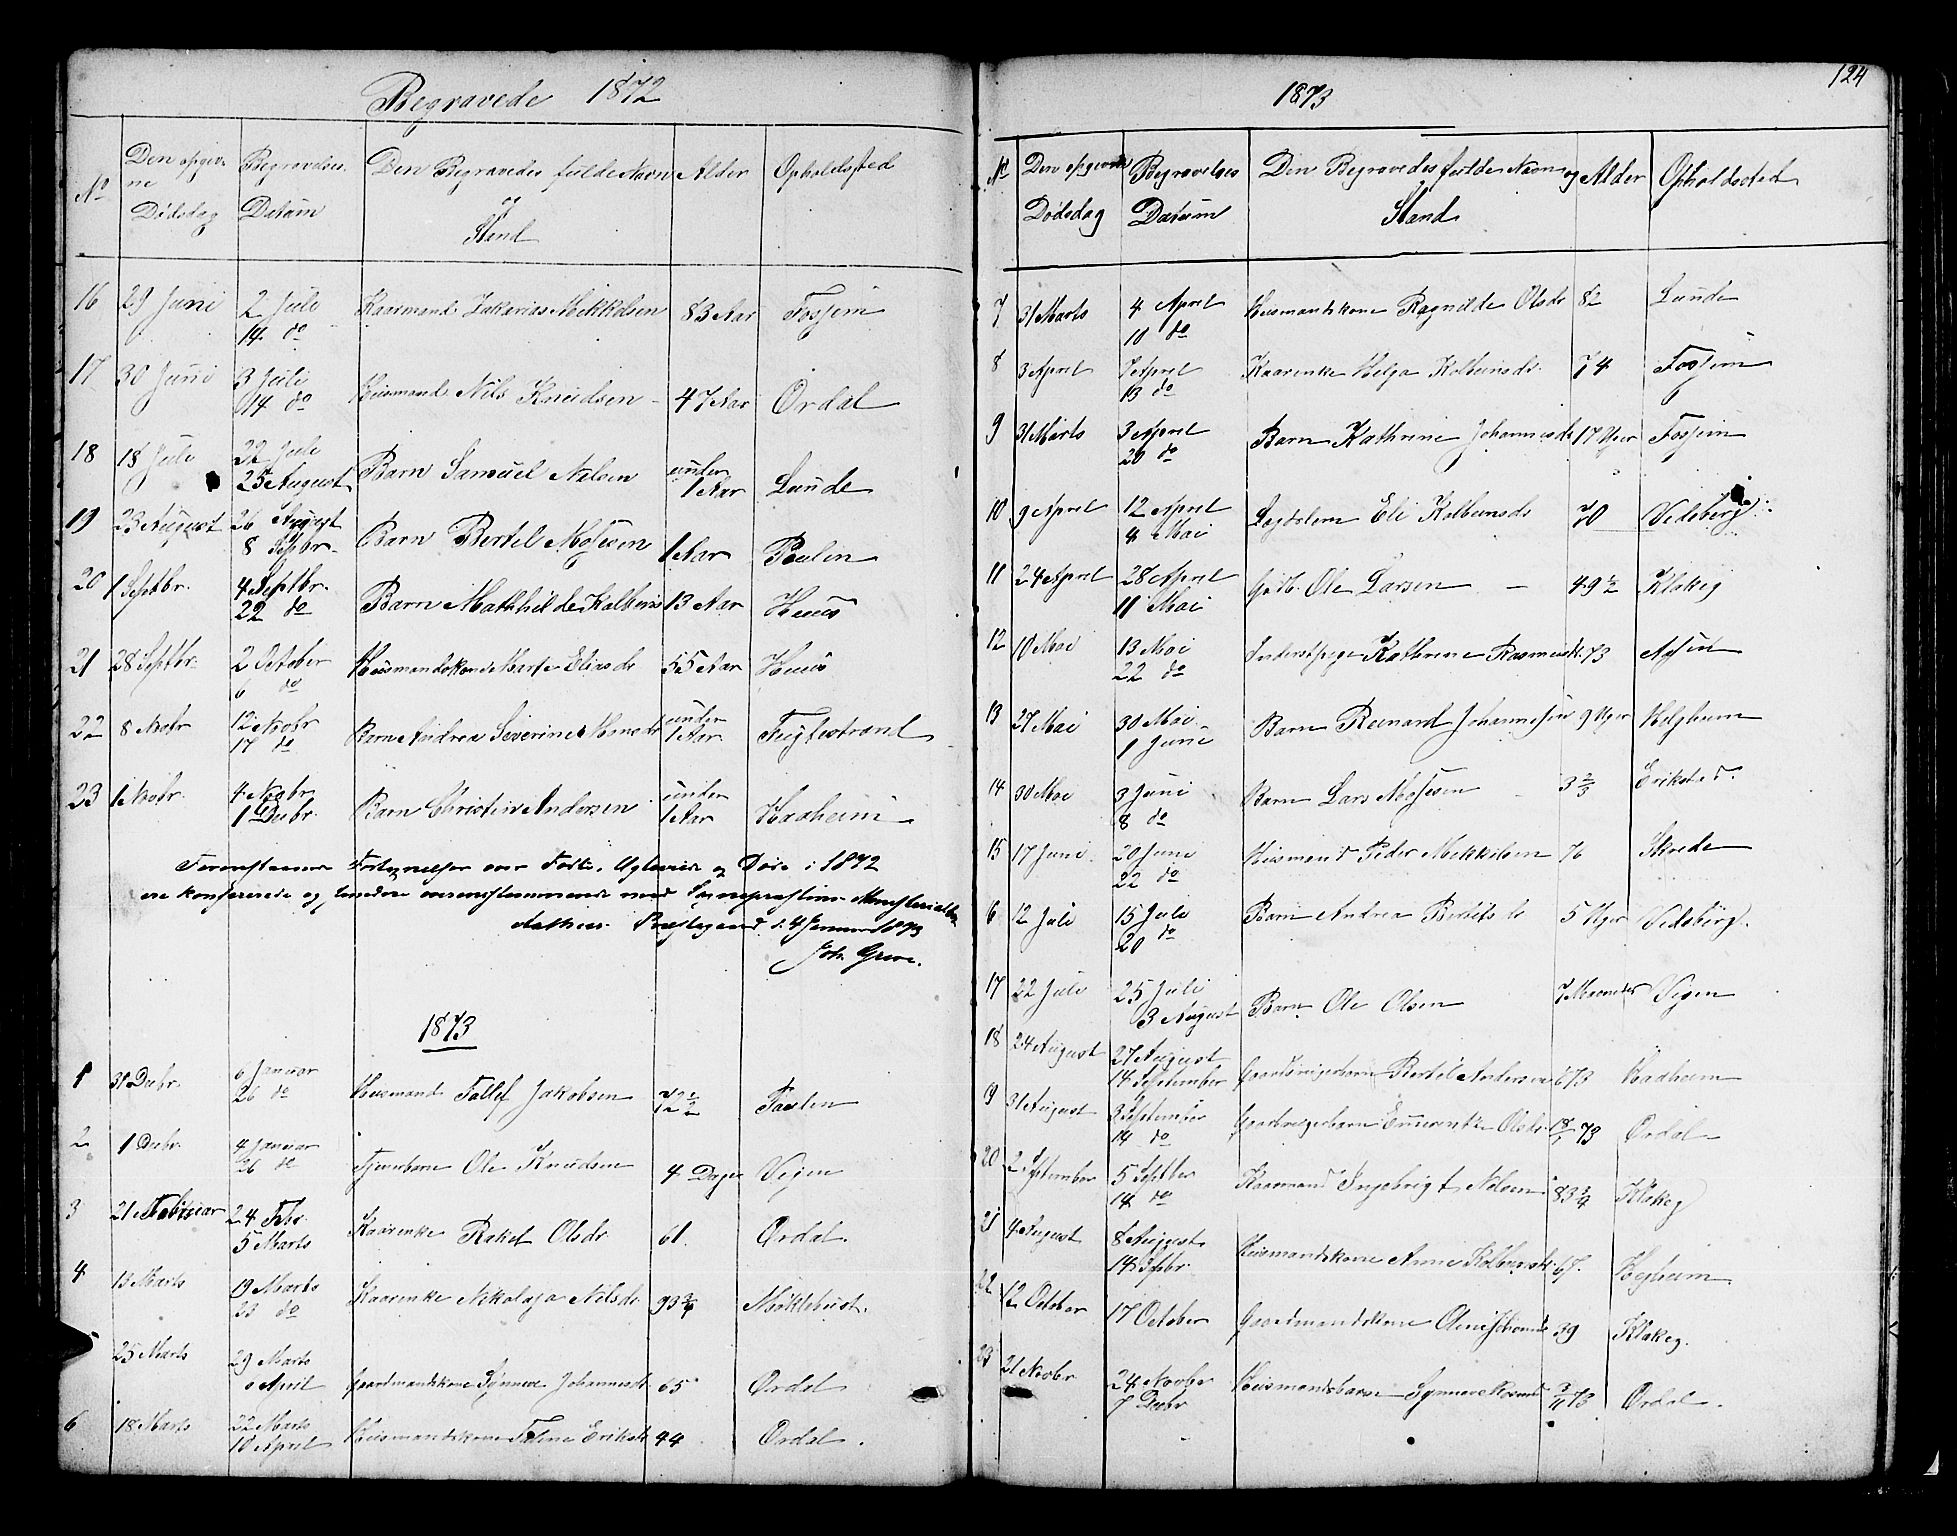 Begravede 1872
No Den opgivne Dødsdag Begravelses Datum Den Begravedes fulde Navn og Stand Alder Opholdssted
16 29 Juni 2 Juli 14 do Kaarmand Zakarias Mikkelsen 83 Aar Fosheim
17 30 Juni 3 Juli 14 do Huusmand Nils Knudsen 47 Aar Ordal
18 18 Juli 22 Juli 25 August Barn Samuel Nilsen under 1 Aar Lunde
19 23 August 26 August 8 Septbr. Barn Bertel Mosesen 1 Aar Paulen
20 1 Septbr. 4 Septbr. 22 do Barn Mathilde Kolbens 13 Aar Huus
21 28 Septbr. 2 October 6 do Huusmandskone Marte Eliasdr 55 Aar Huus
22 8 Novbr 12 Novbr 17 do Barn Andrea Severine Monsdr under 1 Aar Fuglestrand
23 1 Novbr. 4 Novbr. 1 Decbr. Barn Christen Andersen under 1 Aar Haaheim
Foranstaaende Fortegnelser over Fødte, Ugteviede og Døde i 1872
ere konfererede og fundne overensstemmende med Sognepræstens Ministerialbog
Præstegaard d. 4 Januar 1873
Joh. Greve.
1873
1 31 Decbr. 6 Januar 26 do Huusmand Tallef Jakobsen 72 1/2 Paulen
2 1 Decbr. 4 Januar 26 do Tjenerbarn Ole Knudsen 4 Dage Vigen
3 21 Februar 24 Febr. 5 Marts Kaarenke Rakel Olsdr 61 Ordal.
4 13 Marts 19 Marts 23 do Kaarenke Nikolaja Nilsdr 93 3/4 Møklebust.
5 25 Marts 29 Marts April Gaardmandskone Synneve Johannesdr 65 Ordal
6 18 Marts 22 Marts 10 April Huusmandskone Taline Eriksdr 44 Ordal.
124
1873
No Den opgivne Dødsdag Begravelses Datum Den Begravedes fulde Navn og Stand Alder Opholdssted
7 31 Marts 4 April 10 do Huusmandskone Ragnilde Olsdr 82 Lunde
8 3 April 7 April 13 do Kaarenke Helga Kolbeinsdr. 74 Fosheim
9 31 Marts 3 April 20 do Barn Kathrine Johannesdr 17 Uger Fosheim
10 9 April 12 April 4 Mai Lægdslem Eli Kolbeinsdr 70 Vedeberg
11 24 April 28 April 11 Mai Ole Larsen 49 1/2 Klakeg
12 10 Mai 13 Mai 22 do Kathrine Rasmusdr. 73
13 27 Mai 30 Mai 1 Juni Barn Reinard Johannesen 9 Uger Helgheim
14 30 Mai 3 Juni 8 do Barn Lars Mosesen 3 2/3 Erikstad.
15 17 Juni. 20 Juni 22 do Huusmand Peder Mikkelsen 76 Skrede
6 12 Juli 15 Juli 20 do Barn Andrea Bertelsdr 5 Uger Vedeberg.
17 22 Juli 25 Juli 3 August Barn Ole Olsen 7 Maaneder Vigen
18 24 August 27 August 14 September Gaardbrugerbarn Bertel Andersen 73 Haaheim
9 31 August 3 September 14 do Gaardbrugerbarn Emerenke Olsdr. 18/1 73 Ordal
20 2 September 5 Septbr 14 do Kaarmand Ingebrigt Nilsen 83 3/4 Klakeg
21 4 August 8 August 14 Septbr. Huusmandskone Anne Kolbeinsdr. 67. Hegheim
22 12 October 17 October Gaardmandskone Oline 39 Klakeg.
23 21 Novbr 24 Novbr 7 Decbr Huusmandsbarn Synneve 3/11 73 Ordal.